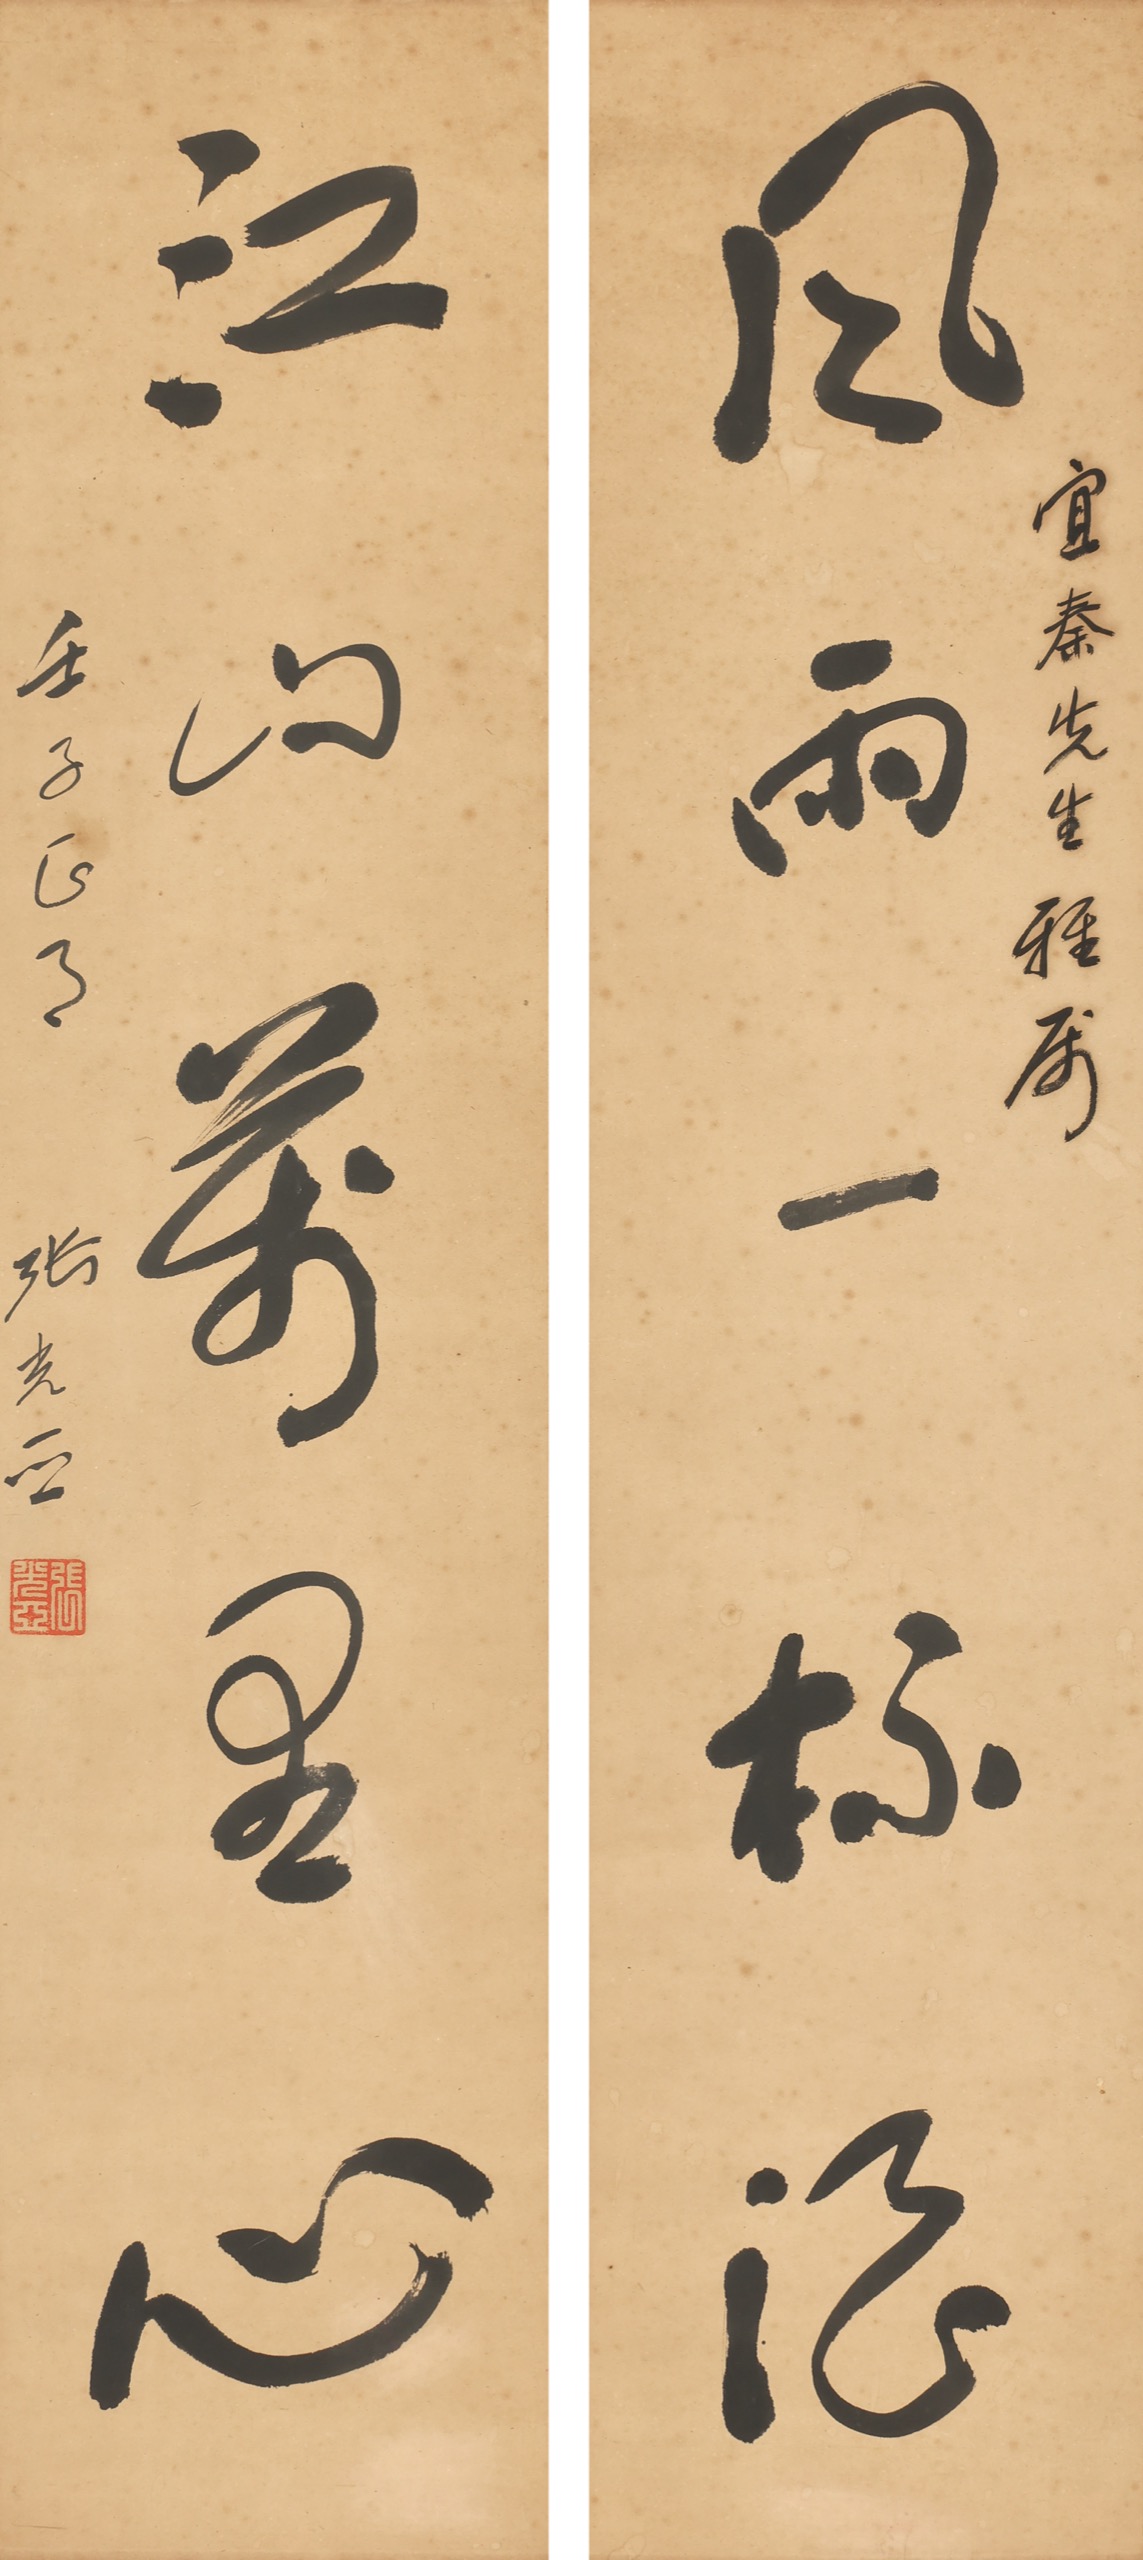 宜秦先生雅属
風雨一杯酒
江山萬里心
壬子正月 張光亞
張光亞